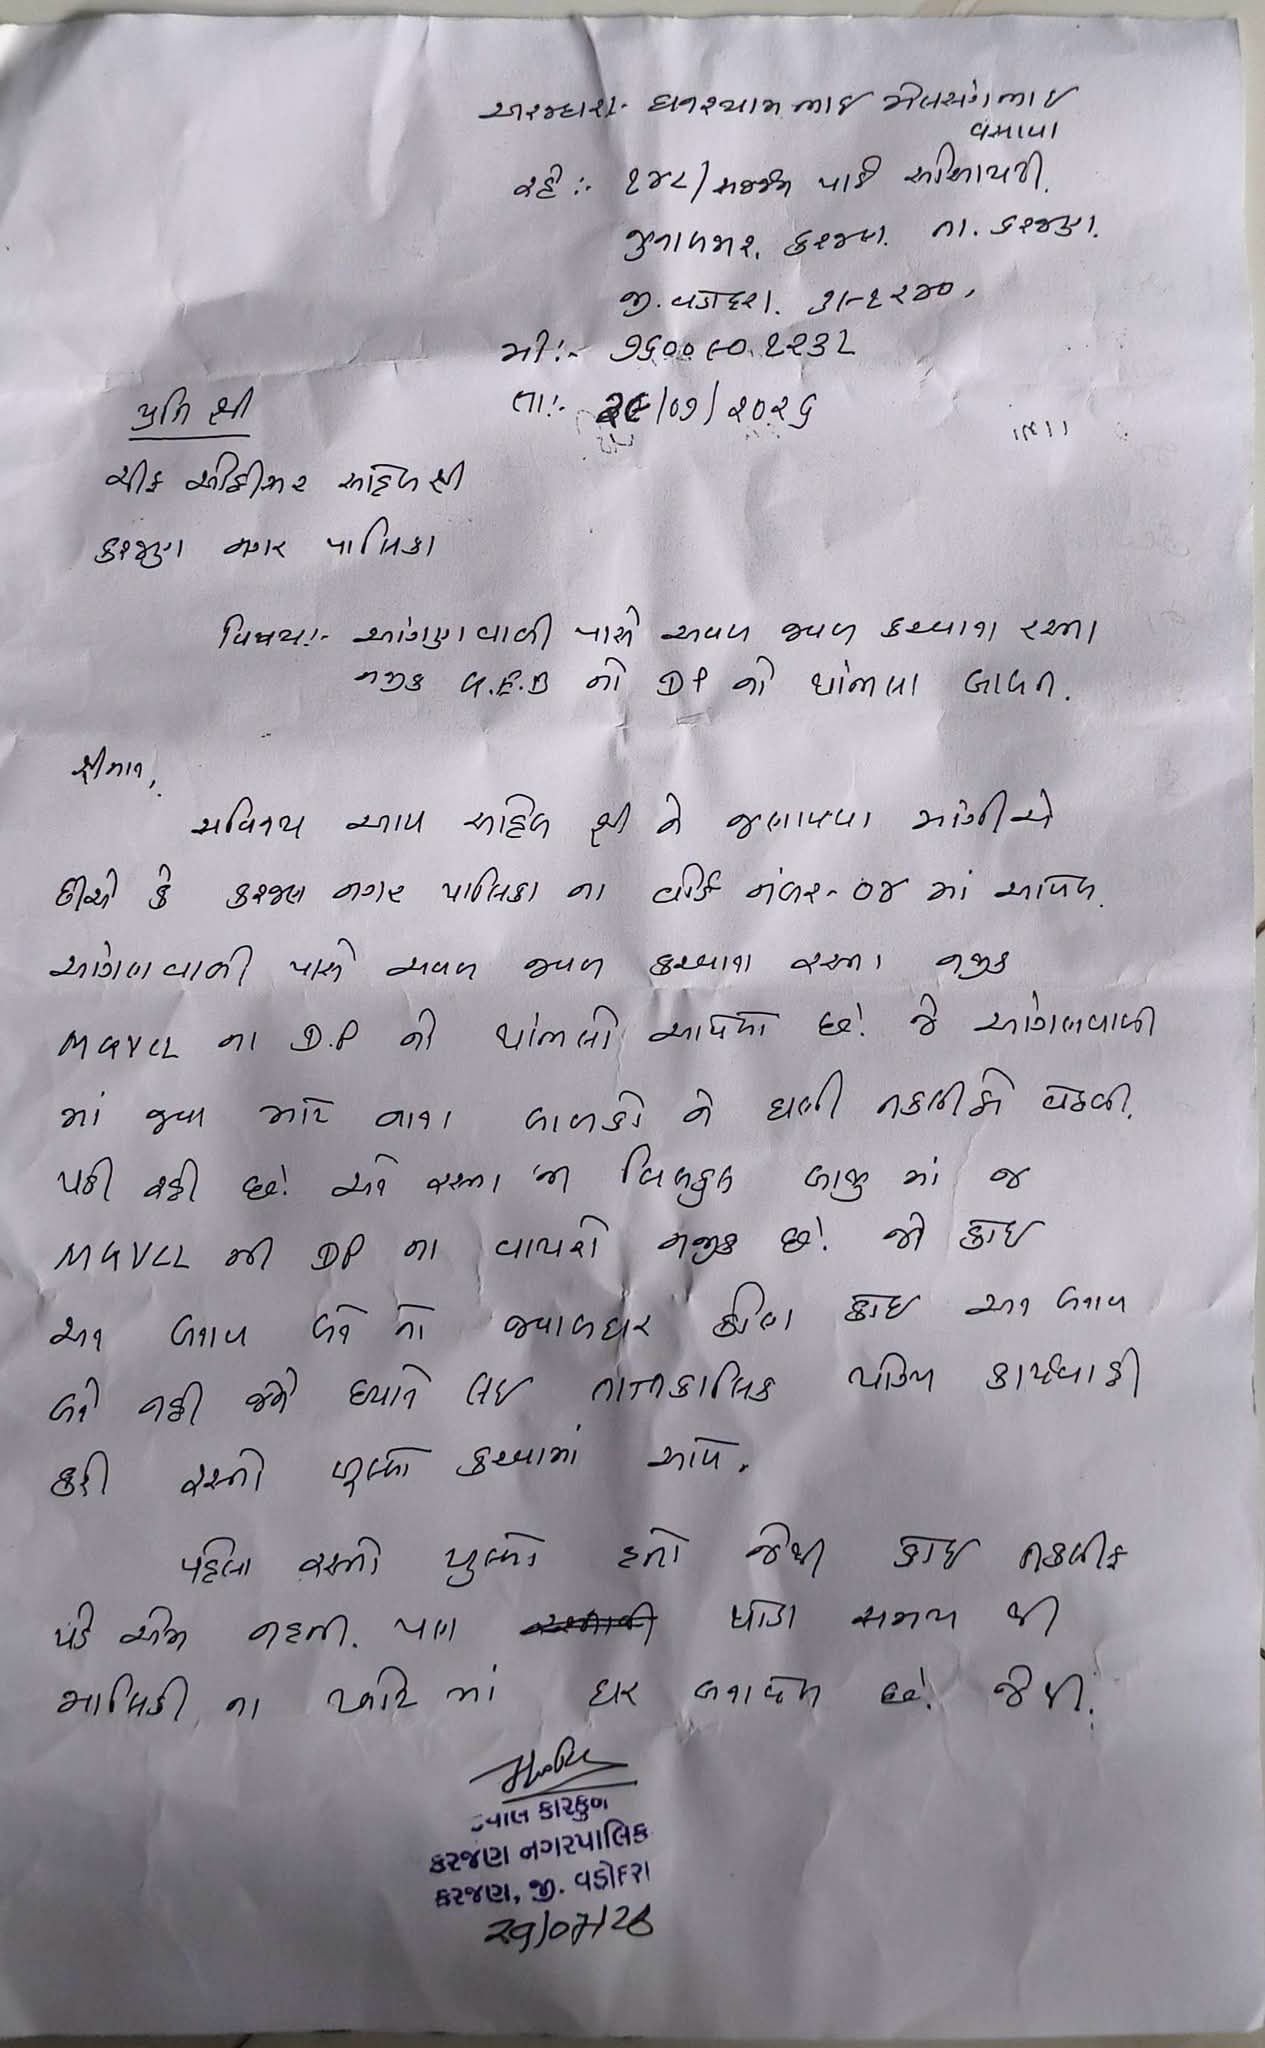 અરજદાર:- ઘનશ્યામભાઈ ભાઈ
વસાવા
રહે:- ૧૪૮/ પાર્ક સોસાયટી
જુનાબજાર, કરજણ. તા. કરજણ.
જી. વડોદરા. ૩૯૧૨૪૦.
મો:- ૭૬૦૦૯૦૧૨૩૮
તા:- ૨૯/૦૭/૨૦૨૬
પ્રતિ શ્રી
ચીફ ઓફીસર સાહેબ શ્રી
કરજણ નગર પાલિકા
વિષય:- આંગણવાળી પાસે અવળ જવળ કરવાના રસ્તા
નજીક G.E.B નો DP નો થાંભલા બાબત.
શ્રીમાન,
સવિનય આપ સાહેબ શ્રી ને જણાવવા માંગીએ
છીએ કે કરજણ નગર પાલિકા ના વોર્ડ નંબર-૦૪ માં આવેલ
આંગણવાળી પાસે અવળ જવળ કરવાના રસ્તા નજીક
MGVCL ના D.P નો થાંભલો આવેલો છે. જે આંગણવાળી
માં જવા માટે નાના બાળકો ને ઘણી તકલીફો વેઠવી
પડી રહી છે. અને રસ્તા ની બિલકુલ બાજુ માં જ
MGVCL ની DP ના વાયરો નજીક છે. જો કોઈ
અન બનાવ બને તો જવાબદાર કોણ કોઈ અન બનાવ
બને નહી જેને ધ્યાને લઈ તાત્કાલિક યોગ્ય કાર્યવાહી
કરી રસ્તો ખુલ્લો કરવામાં આવે.
પહેલા રસ્તો ખુલ્લો હતો જેથી કોઈ તકલીફ
પડે એમ નહતી. પણ થોડા સમય થી
માલિકી ના પ્લોટ માં ઘર બનાવેલ છે. જેથી
કારકુન
કરજણ નગરપાલિક
કરજણ, જી. વડોદરા
29/07/26